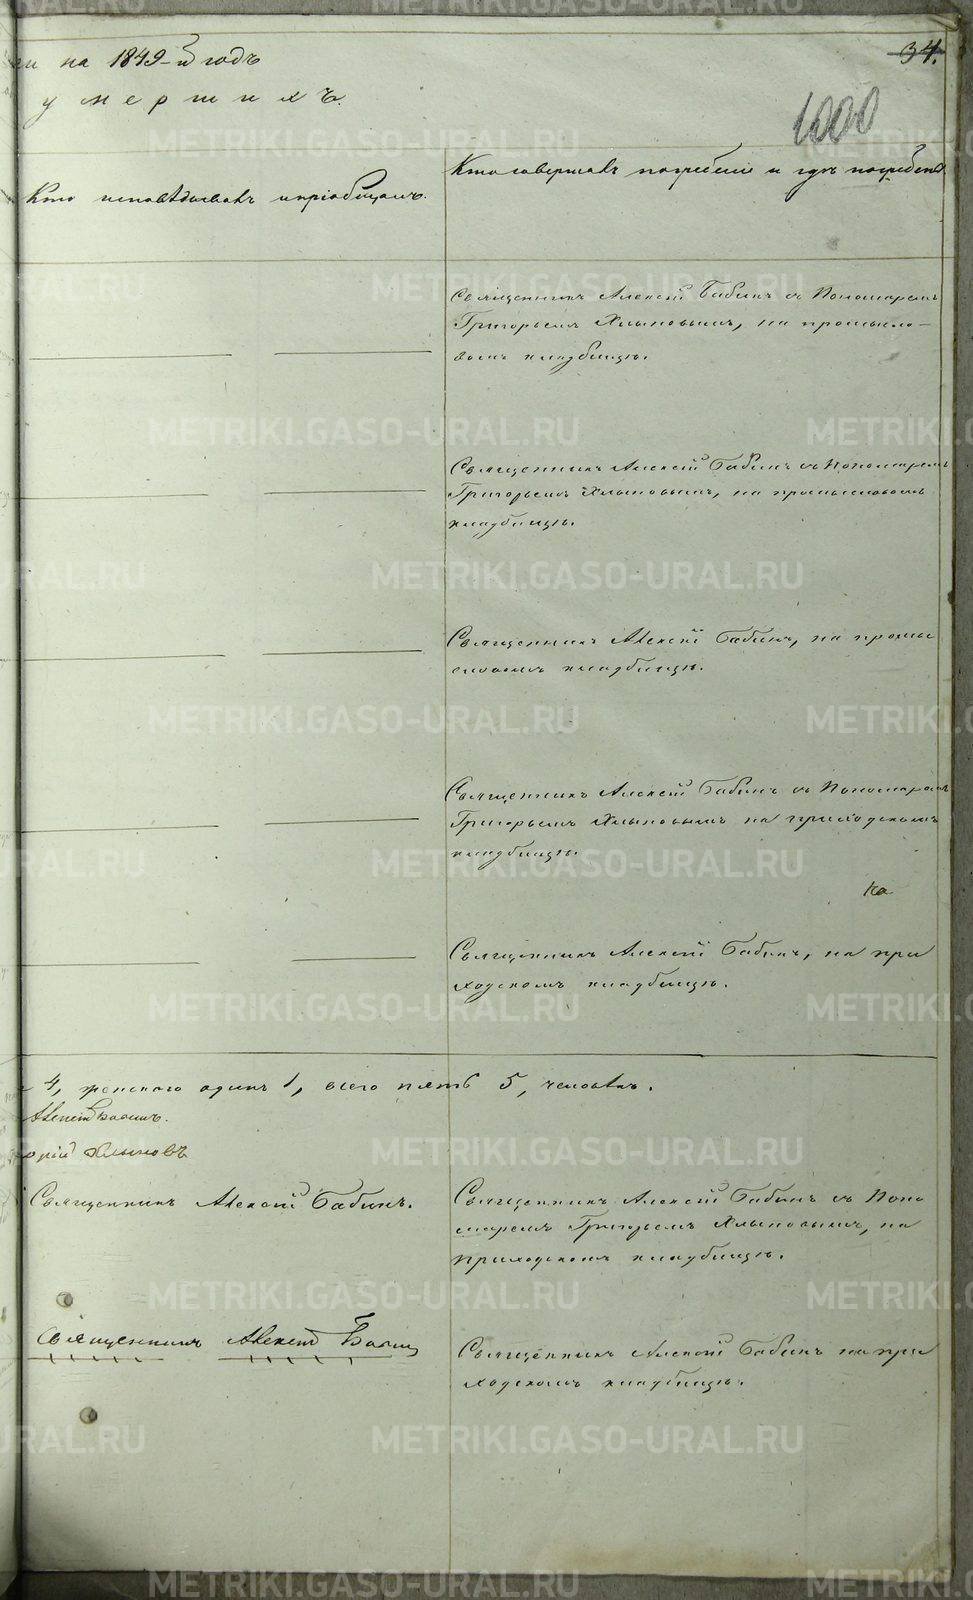 на 1849-й годъ
34.
умершихъ.
1000
Кто исповѣдывалъ и пріобщалъ.
Кто совершалъ погребеніе и гдѣ погребены
Священникъ Алексій Бабинъ съ Пономаремъ
Григорьемъ Хлыновымъ, на промысло-
вомъ кладбищѣ.
Священникъ Алексій Бабинъ съ Пономаремъ
Григорьемъ Хлыновымъ, на промысловомъ
кладбищѣ.
Священникъ Алексій Бабинъ, на промы
словомъ кладбищѣ.
Священникъ Алексій Бабинъ съ Пономаремъ
Григорьемъ Хлыновымъ на приходскомъ
кладбищѣ.
на
Священникъ Алексій Бабинъ, на при
ходскомъ кладбищѣ.
4, женскаго одинъ 1, всего пять 5, человѣкъ.
Алексій Бабинъ.
рій Хлыновъ
Священникъ Алексій Бабинъ.
Священникъ Алексій Бабинъ съ Поно
маремъ Григорьемъ Хлыновымъ, на
приходскомъ кладбищѣ.
Священникъ Алексій Бабинъ
Священникъ Алексій Бабинъ на при
ходскомъ кладбищѣ.
METRIKI.GASO-URAL.RU